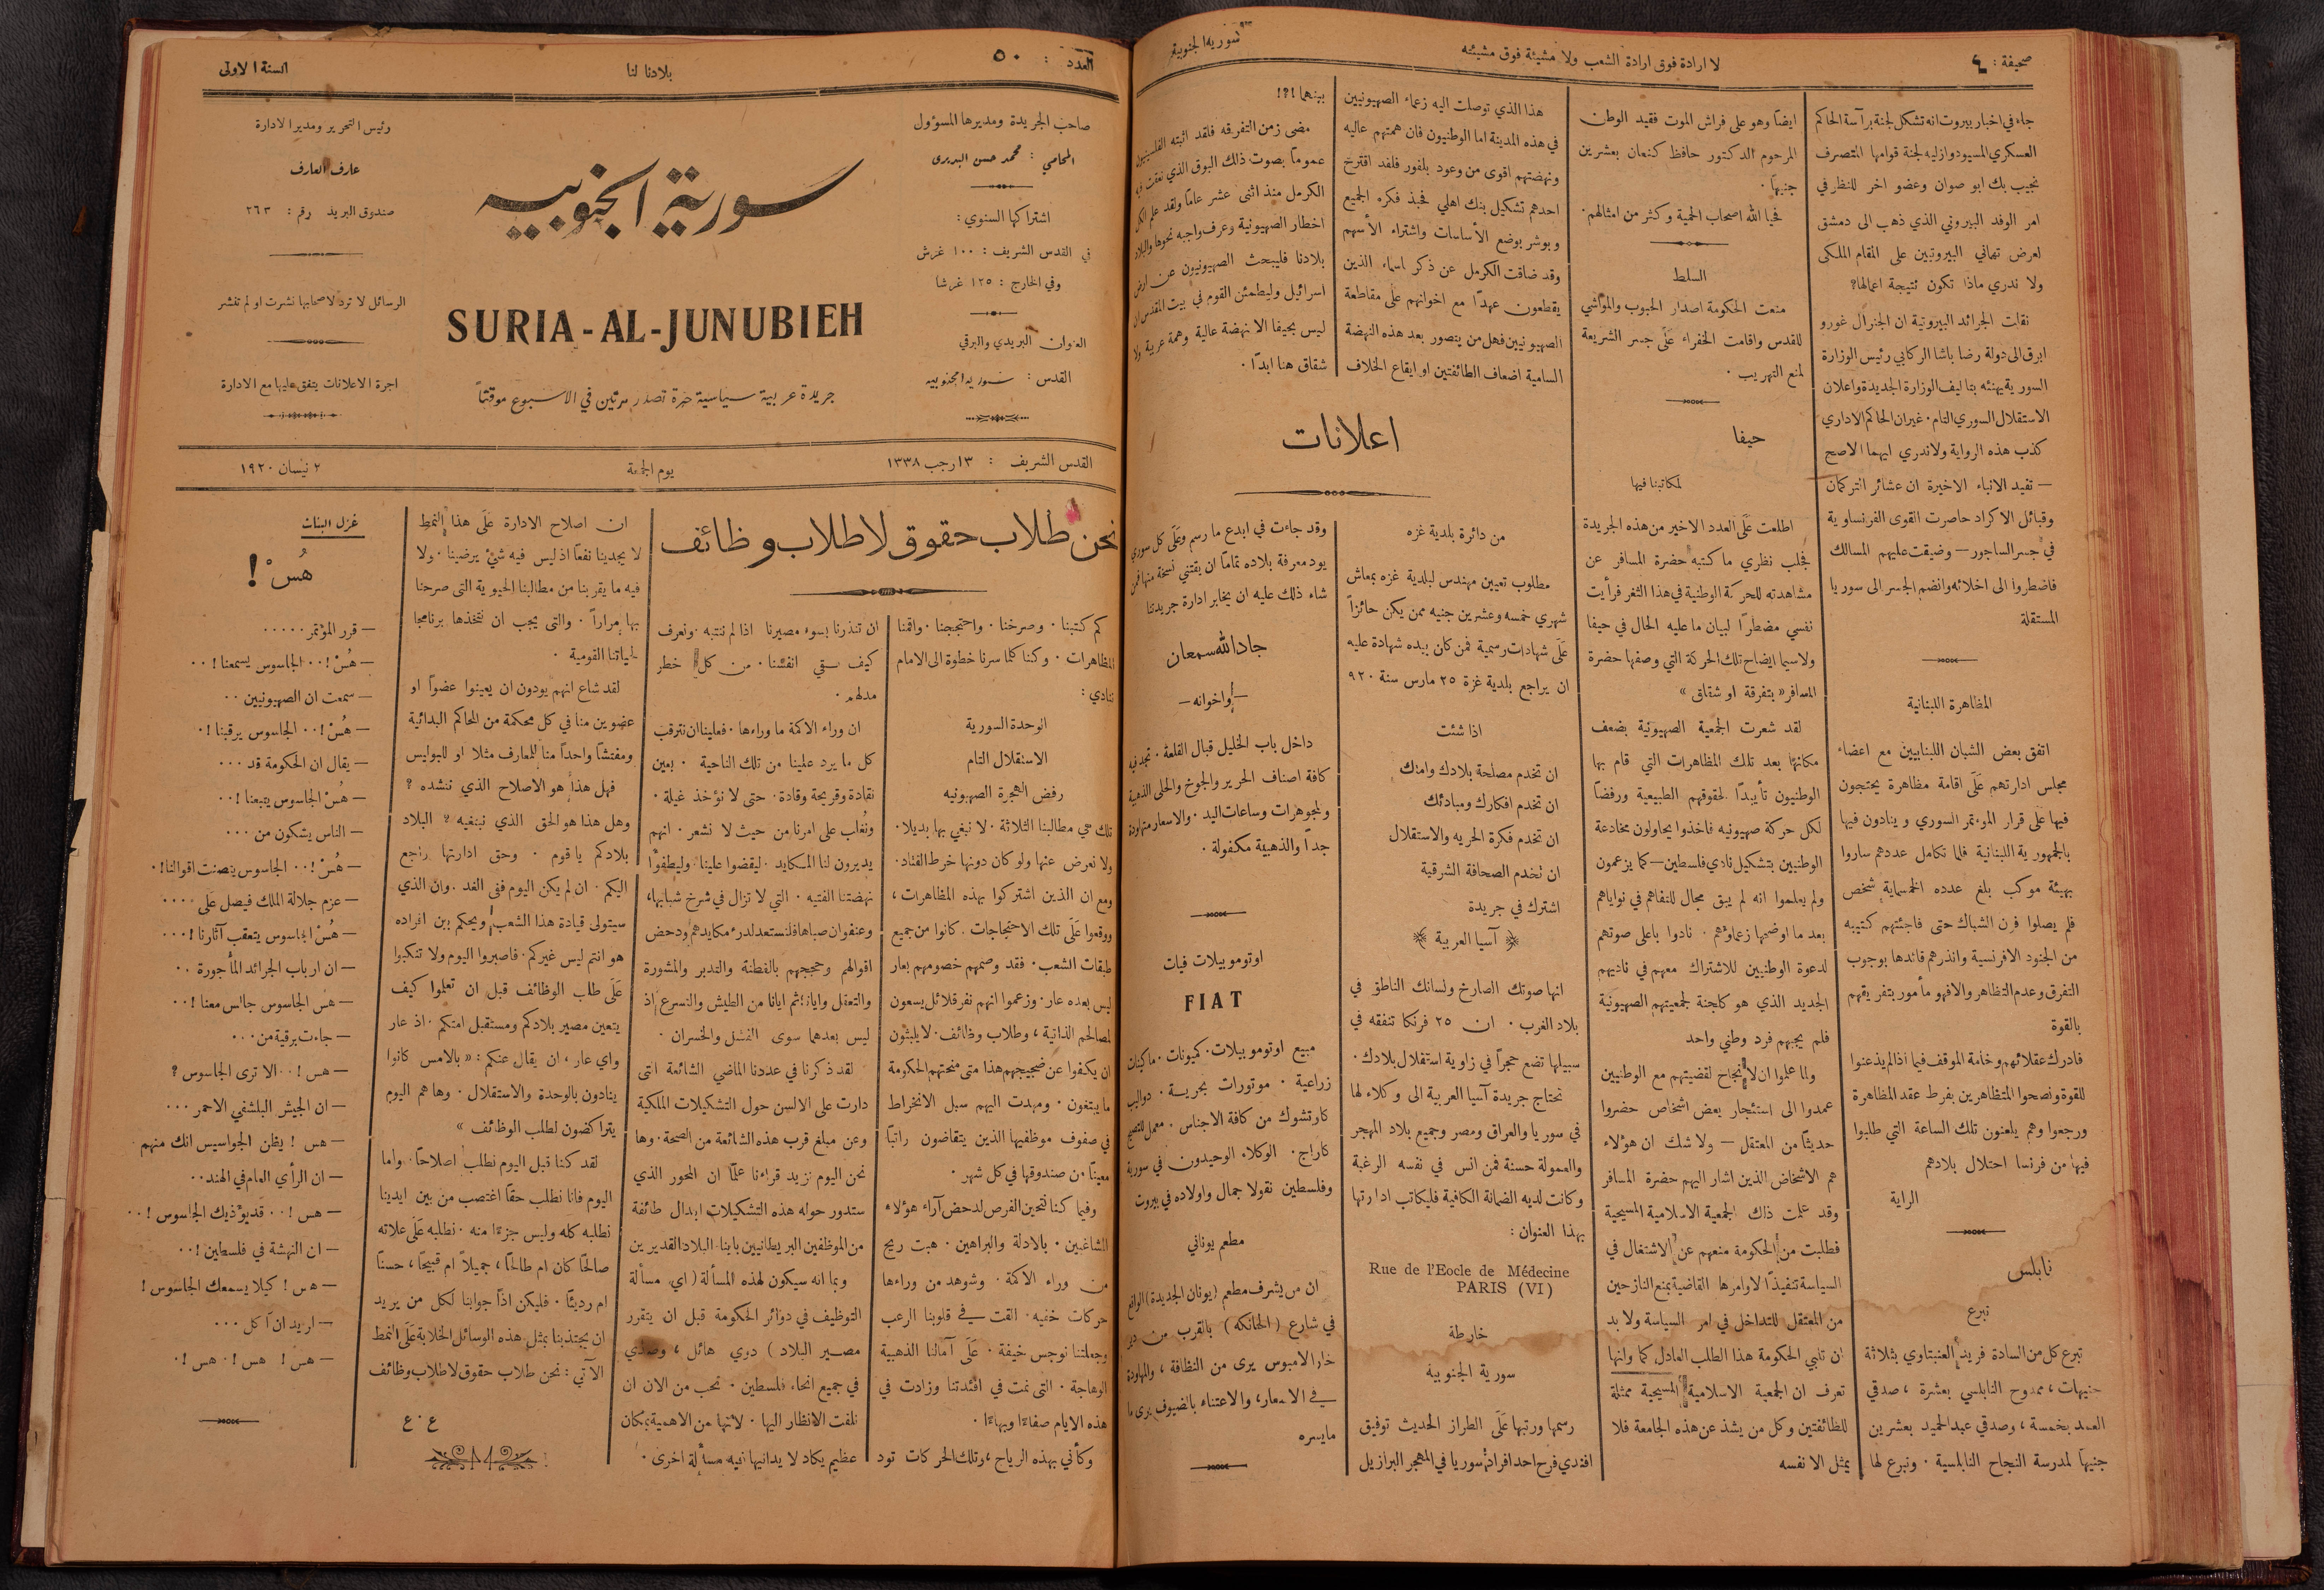 صحيفة : ٤
لا ارادة فوق ارادة الشعب ولا مشيئة فوق مشيئته
سورية الجنوبية
جاء في اخبار بيروت انه تشكل لجنة برآسة الحاكم
العسكري المسيو دوازليه لجنة قوامها المتصرف
نجيب بك ابو صوان وعضو اخر للنظر في
امر الوفد البيروتي الذي ذهب الى دمشق
لعرض تهاني البيروتيين على المقام الملكى
ولا ندري ماذا تكون نتيجة اعمالها؟
نقلت الجرائد البيروتية ان الجنرال غورو
ابرق الى دولة رضا باشا الركابي رئيس الوزارة
السورية يهنئه بتاليف الوزارة الجديدة واعلان
الاستقلال السوري التام . غير ان الحاكم الاداري
كذب هذه الرواية ولا ندري ايهما الاصح
— تفيد الانباء الاخيرة ان عشائر التركمان
وقبائل الاكراد حاصرت القوى الفرنساوية
في جسر الساجور — وضيقت عليهم المسالك
فاضطروا الى اخلائه وانضم الجسر الى سوريا
المستقلة
المظاهرة اللبنانية
اتفق بعض الشبان اللبنانيين مع اعضاء
مجلس ادارتهم عَلَى اقامة مظاهرة يحتجون
فيها عَلَى قرار المؤتمر السوري وينادون فيها
بالجمهورية اللبنانية فلما تكامل عددهم ساروا
بهيئة موكب بلغ عدده الخمسماية شخص
فلم يصلوا فرن الشباك حتى فاجئتهم كتيبه
من الجنود الافرنسية وانذرهم قائدها بوجوب
التفرق وعدم التظاهر والا فهو مأمور بتفريقهم
بالقوة
فادرك عقلائهم وخامة الموقف فيما اذا لم يذعنوا
للقوة ونصحوا المتظاهرين بفرط عقد المظاهرة
ورجعوا وهم يلعنون تلك الساعة التي طلبوا
فيها من فرنسا احتلال بلادهم
الراية
نابلس
تبرع
تبرع كل من السادة فريد العنبتاوي بثلاثة
جنيهات ، ممدوح النابلسي بعشرة ، صدقي
العمد بخمسة ، وصدقي عبد الحميد بعشرين
جنيهاً لمدرسة النجاح النابلسية . وتبرع لها
ايضاً وهو على فراش الموت فقيد الوطن
المرحوم الدكتور حافظ كنعان بعشرين
جنيهاً .
فحيا الله اصحاب الحمية وكثر من امثالهم .
السلط
منعت الحكومة اصدار الحبوب والمواشي
للقدس واقامت الخفراء عَلَى جسر الشريعة
لمنع التهريب .
حيفا
لمكاتبنا فيها
اطلعت عَلَى العدد الاخير من هذه الجريدة
فجلب نظري ما كتبه حضرة المسافر عن
مشاهدته للحركة الوطنية في هذا الثغر فرأيت
نفسي مضطراً لبيان ما عليه الحال في حيفا
ولاسيما ايضاح تلك الحركة التي وصفها حضرة
المسافر « بتفرقة او شقاق »
لقد شعرت الجمعية الصهيونية بضعف
مكانتها بعد تلك المظاهرات التي قام بها
الوطنيون تأييداً لحقوقهم الطبيعية ورفضاً
لكل حركة صهيونيه فاخذوا يحاولون مخادعة
الوطنيين بتشكيل نادي فلسطين — كما يزعمون
ولم يعلموا انه لم يبق مجال للتفاهم في نواياهم
بعد ما اوضحها زعماؤهم . نادوا باعلى صوتهم
لدعوة الوطنيين للاشتراك معهم في ناديهم
الجديد الذي هو كلجنة لجمعيتهم الصهيونية
فلم يجبهم فرد وطني واحد
ولما علموا ان لا نجاح لقضيتهم مع الوطنيين
عمدوا الى استئجار بعض اشخاص حضروا
حديثاً من المعتقل — ولا شك ان هؤلاء
هم الاشخاص الذين اشار اليهم حضرة المسافر
وقد علمت ذاك الجمعية الاسلامية المسيحية
فطلبت من الحكومة منعهم عن الاشتغال في
السياسة تنفيذاً لاوامرها القاضية بمنع النازحين
من المعتقل للتداخل في امر السياسة ولا بد
ان تلبي الحكومة هذا الطلب العادل كما وانها
تعرف ان الجمعية الاسلامية المسيحية ممثلة
للطائفتين وكل من يشذ عن هذه الجامعة فلا
يمثل الا نفسه
هذا الذي توصلت اليه زعماء الصهيونيين
في هذه المدينة اما الوطنيون فان همتهم عاليه
ونهضتهم اقوى من وعود بلفور فلقد اقترح
احدهم تشكيل بنك اهلي فحبذ فكره الجميع
وبوشر بوضع الأساسات واشتراء الأسهم
وقد ضاقت الكرمل عن ذكر اسماء الذين
يقطعون عهداً مع اخوانهم عَلَى مقاطعة
الصهيونيين فهل من يتصور بعد هذه النهضة
السامية اضعاف الطائفتين او ايقاع الخلاف
بينهما !؟!
مضى زمن التفرقه فلقد اثبته الفلسينيون
عموماً بصوت ذلك البوق الذي نعقت فيه
الكرمل منذ اثنى عشر عاماً ولقد علم الكل
اخطار الصهيونية وعرف واجبه نحوها والبلاد
بلادنا فليبحث الصهيونيون عن ارض
اسرائيل وليطمئن القوم في بيت المقدس ان
ليس بحيفا الا نهضة عالية وهمة عربية ولا
شقاق هنا ابداً .
اعلانات
من دائرة بلدية غزه
مطلوب تعيين مهندس لبلدية غزه بمعاش
شهري خمسه وعشرين جنيه ممن يكن حائزاً
عَلَى شهادات رسمية فمن كان بيده شهادة عليه
ان يراجع بلدية غزة ٢٥ مارس سنة ٩٢٠
اذا شئت
ان تخدم مصلحة بلادك وامتك
ان تخدم افكارك ومبادئك
ان تخدم فكرة الحريه والاستقلال
ان تخدم الصحافة الشرقية
اشترك في جريدة
آسيا العربية
انها صوتك الصارخ ولسانك الناطق في
بلاد الغرب . ان ٢٥ فرنكا تنفقه في
سبيلها تضع حجراً في زاوية استقلال بلادك .
نحتاج جريدة آسيا العربية الى وكلاء لها
في سوريا والعراق ومصر وجميع بلاد المهجر
والعمولة حسنة فمن انس في نفسه الرغبة
وكانت لديه الضمانة الكافية فليكاتب ادارتها
بهذا العنوان :
Rue de l'Eocle de Médecine
PARIS (VI)
خارطة
سورية الجنوبية
رسمها ورتبها عَلَى الطراز الحديث توفيق
افندي فرح احد افراد سوريا في المهجر البرازيل
وقد جاءت في ابدع ما رسم وعَلَى كل سوري
يود معرفة بلاده تماماً ان يقتني نسخة منها فمن
شاء ذلك عليه ان يخابر ادارة جريدتنا
جادالله سمعان
— واخوانه —
داخل باب الخليل قبال القلعة . تجد فيه
كافة اصناف الحرير والجوخ والحلى الذهبية
ولمجوهرات وساعات اليد . والاسعار متهاودة
جداً والذهبية مكفولة .
اوتوموبيلات فيات
FIAT
مبيع اوتوموبيلات . كميونات . ماكينات
زراعية . موتورات بحرية . دواليب
كاوتشوك من كافة الاجناس . معمل للتصليح
كاراج . الوكلاء الوحيدون في سورية
وفلسطين نقولا جمال واولاده في بيروت
مطعم يوناني
ان من يشرف مطعم (يونان الجديدة) الواقع
في شارع (الخانكه) بالقرب من دير
خار الامبوس يرى من النظافة ، والمهاودة
في الاسعار، والاعتناء بالضيوف يرى ما
مايسره
العدد : ٥٠
بلادنا لنا
السنة الاولى
صاحب الجريدة ومديرها المسؤول
المحامي : محمد حسن البديري
اشتراكها السنوي :
في القدس الشريف : ١٠٠ غرش
وفي الخارج : ١٢٥ غرشا
العنوان البريدي والبرقي
القدس : سوريه الجنوبيه
سورية الجنوبيه
SURIA-AL-JUNUBIEH
جريدة عربية سياسية حرة تصدر مرتين في الاسبوع موقتاً
رئيس التحرير ومدير الادارة
عارف العارف
صندوق البريد رقم : ٢٦٣
الرسائل لا ترد لاصحابها نشرت او لم تنشر
اجرة الاعلانات يتفق عليها مع الادارة
القدس الشريف : ١٣ رجب ١٣٣٨
يوم الجمعة
٢ نيسان ١٩٢٠
نحن طلاب حقوق لا طلاب وظائف
كم كتبنا . وصرخنا . واحتججنا . واقمنا
المظاهرات . وكنا كلما سرنا خطوة الى الامام
ننادي :
الوحدة السورية
الاستقلال التام
رفض الهجرة الصهيونيه
تلك هي مطالبنا الثلاثة . لا نبغي بها بديلا .
ولا نعرض عنها ولو كان دونها خرط القتاد .
ومع ان الذين اشتركوا بهذه المظاهرات ،
ووقعوا عَلَى تلك الاحتجاجات . كانوا من جميع
طبقات الشعب . فقد وصمهم خصومهم بعار
ليس بعده عار . وزعموا انهم نفر قلائل يسعون
لمصالحهم الذاتية ، وطلاب وظائف . لا يلبثون
ان يكفوا عن ضجيجهم هذا متى منحتهم الحكومة
ما يبتغون . ومهدت اليهم سبل الانخراط
في صفوف موظفيها الذين يتقاضون راتباً
معيناً من صندوقها في كل شهر .
وفيما كنا نتحين الفرص لدحض آراء هؤلاء
المشاغبين . بالادلة والبراهين . هبت ريح
من وراء الاكمة . وشوهد من وراءها
حركات خفيه . القت في قلوبنا الرعب
وجعلتنا نوجس خيفة . عَلَى آمالنا الذهبية
الوهاجة . التى نمت في افئدتنا وزادت في
هذه الايام صفاءًا وبهاءًا .
وكأني بهذه الرياح ، وتلك الحركات تود
ان تنذرنا بسوء مصيرنا اذا لم ننتبه . ونعرف
كيف نقي انفسنا . من كل خطر
مدلهم .
ان وراء الاكمة ما وراءها . فعلينا ان نترقب
كل ما يرد علينا من تلك الناحية . بعين
نقادة وقريحة وقادة . حتى لا نؤخذ غيلة .
ونُغلب على امرنا من حيث لا نشعر . انهم
يديرون لنا المكايد . ليقضوا علينا . وليطفؤا
نهضتنا الفتيه . التي لا تزال في شرخ شبابها،
وعنفوان صباها فلنستعد لدرء مكايدهم ودحض
اقوالهم وحججهم بالفطنة والتدبر والمشورة
والتعقل وايانا ثم ايانا من الطيش والتسرع اذ
ليس بعدهما سوى الفشل والخسران .
لقد ذكرنا في عددنا الماضي الشائعة التى
دارت على الالسن حول التشكيلات الملكية
وعن مبلغ قرب هذه الشائعة من الصحة . وها
نحن اليوم نزيد قراءنا علماً ان المحور الذي
ستدور حوله هذه التشكيلات ابدال طائفة
من الموظفين البريطانيين بابناء البلاد القديرين
وبما انه سيكون لهذه المسألة (اي مسألة
التوظيف في دوائر الحكومة قبل ان يتقرر
مصير البلاد ) دوي هائل ، وصدى
في جميع انحاء فلسطين . نحب من الان ان
نلفت الانظار اليها . لانها من الاهمية بمكان
عظيم يكاد لا يدانيها فيه مسألة اخرى .
ان اصلاح الادارة عَلَى هذا النمط
لا يجدينا نفعاً اذ ليس فيه شيء يرضينا . ولا
فيه ما يقربنا من مطالبنا الحيوية التى صرحنا
بها مراراً . والتى يجب ان نتخذها برنامجا
لحياتنا القومية .
لقد شاع انهم يودون ان يعينوا عضواً او
عضوين منا في كل محكمة من المحاكم البدائية
ومفتشاً واحداً منا للمعارف مثلا او للبوليس
فهل هذا هو الاصلاح الذي ننشده ؟
وهل هذا هو الحق الذي نبتغيه ؟ البلاد
بلادكم يا قوم . وحق ادارتها راجع
اليكم . ان لم يكن اليوم ففى الغد . وان الذي
سيتولى قيادة هذا الشعب ويحكم بين افراده
هو انتم ليس غيركم . فاصبروا اليوم ولا تنكبوا
عَلَى طلب الوظائف قبل ان تعلموا كيف
يتعين مصير بلادكم ومستقبل امتكم . اذ عار
واي عار ، ان يقال عنكم : « بالامس كانوا
ينادون بالوحدة والاستقلال . وها هم اليوم
يتراكضون لطلب الوظائف »
لقد كنا قبل اليوم نطلب اصلاحاً . واما
اليوم فانا نطلب حقاً اغتصب من بين ايدينا
نطلبه كله وليس جزءًا منه . نطلبه عَلَى علاته
صالحاً كان ام طالحاً ، جميلاً ام قبيحاً ، حسناً
ام رديئاً . فليكن اذاً جوابنا لكل من يريد
ان يجتذبنا بمثل هذه الوسائل الخلابة عَلَى النمط
الآتي : نحن طلاب حقوق لا طلاب وظائف
ع . ع
غزل البنات
هُسْ !
— قرر المؤتمر . . . . .
— هُسْ ! . . الجاسوس يسمعنا ! . .
— سمعت ان الصهيونيين . .
— هُسْ ! . . الجاسوس يرقبنا ! .
— يقال ان الحكومة قد . . .
— هُسْ الجاسوس يتبعنا ! . .
— الناس يشكون من . . .
— هُسْ ! . . الجاسوس ينصت اقوالنا ! .
— عزم جلالة الملك فيصل عَلَى . . . .
— هُسْ الجاسوس يتعقب آثارنا ! . . .
— ان ارباب الجرائد المأجورة . .
— هس الجاسوس جالس معنا ! . .
— جاءت برقية من . . .
— هس ! . . الا ترى الجاسوس ؟
— ان الجيش البلشفي الاحمر . . .
— هس ! يظن الجواسيس انك منهم
— ان الرأي العام في الهند . .
— هس ! . . قد يؤذيك الجاسوس ! . .
— ان النهضة في فلسطين ! . .
— هس ! كيلا يسمعك الجاسوس !
— اريد ان آكل . . .
— هس ! هس ! . هس ! .